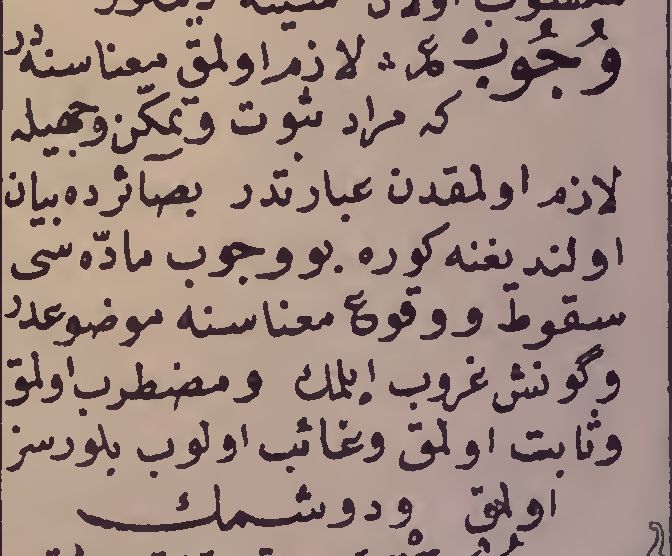 وُجُوبْ ع لازم اولمق معناسنه در
كه مراد ثبوت وتمكّن وجهيله
لازم اولمقدن عبارتدر بصائرده بيان
اولنديغنه كوره بو وجوب مادّه سى
سقوط ووقوع معناسنه موضوعدر
وگونش غروب ايلمك ومضطرب اولمق
وثابت اولمق وغائب اولوب بلورسز
اولمق ودوشمك